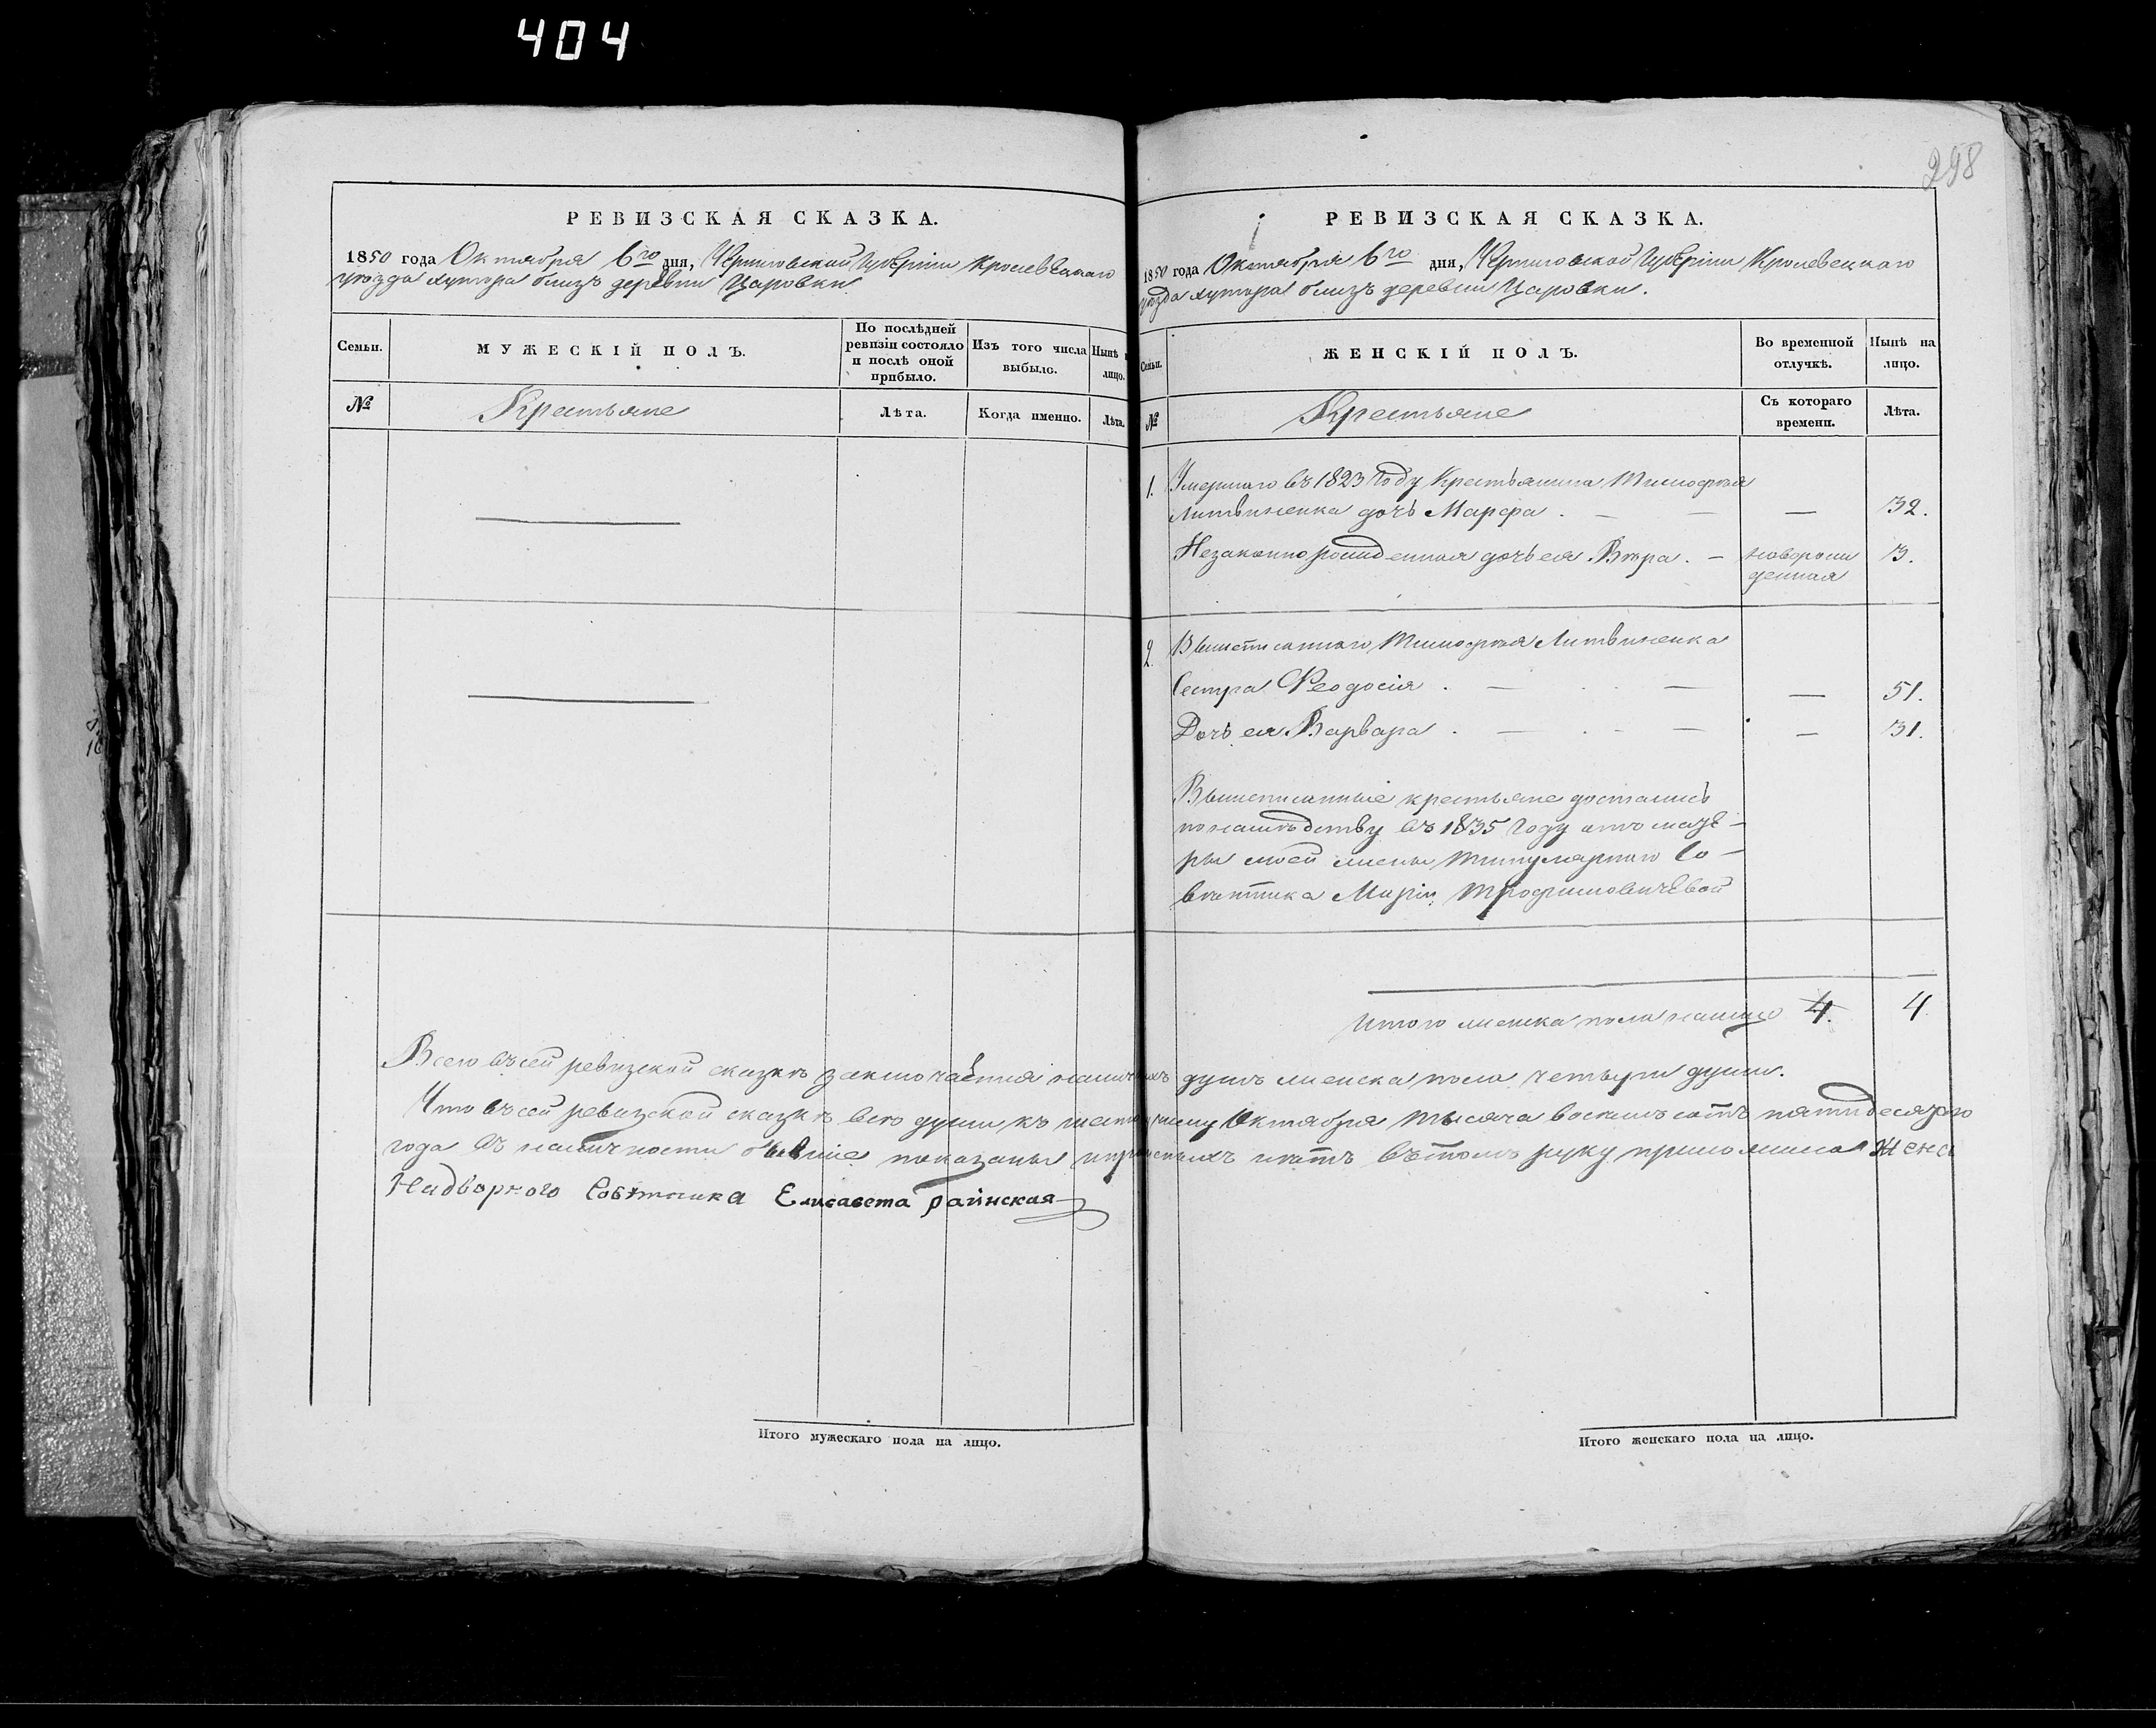 404
298
РЕВИЗСКАЯ СКАЗКА.
1850 года Октября 6го дня, Черниговской Губерніи Кролевецкаго
уѣзда хутора близъ деревни Царовки
Семьи.
МУЖЕСКІЙ ПОЛЪ.
По послѣдней ревизіи состояло и послѣ оной прибыло.
Изъ того числа выбыло.
Нынѣ лицо.
№
Крестьяне
Лѣта.
Когда именно.
Лѣта.
Итого мужескаго пола на лицо.
РЕВИЗСКАЯ СКАЗКА.
1850 года Октября 6го дня, Черниговской Губерніи Кролевецкаго
уѣзда хутора близъ деревни Царовки.
Семьи.
ЖЕНСКІЙ ПОЛЪ.
Во временной отлучкѣ.
Нынѣ на лицо.
№
Крестьяне
Съ котораго времени.
Лѣта.
1. Умершаго въ 1823 году Крестьянина Тимофея
Литвиненка дочь Марфа . — — — 32.
Незаконнорожденная дочь ея Вѣра. — новорож 3.
денная
2. Вышеписаннаго Тимофея Литвиненка
Сестра Феодосія . — — — 51.
Дочь ея Варвара . — — — 31.
Вышеписанные крестьяне достались
по наслѣдству въ 1835 году отъ
моей жены Титулярнаго Со-
вѣтника Маріи Трофимовичевой
Итого женска пола налицо 4. 4
Всего въ сей ревизской сказкѣ заключается наличныхъ душъ женска пола четыри души.
Что въ сей ревизской сказкѣ всѣ души къ шестому Октября тысяча восемьсотъ пятидесятого
года въ наличности бывшіе показаны и нѣтъ въ томъ руку приложила Жена
Надворного Совѣтника Елисавета
Итого женскаго пола на лицо.